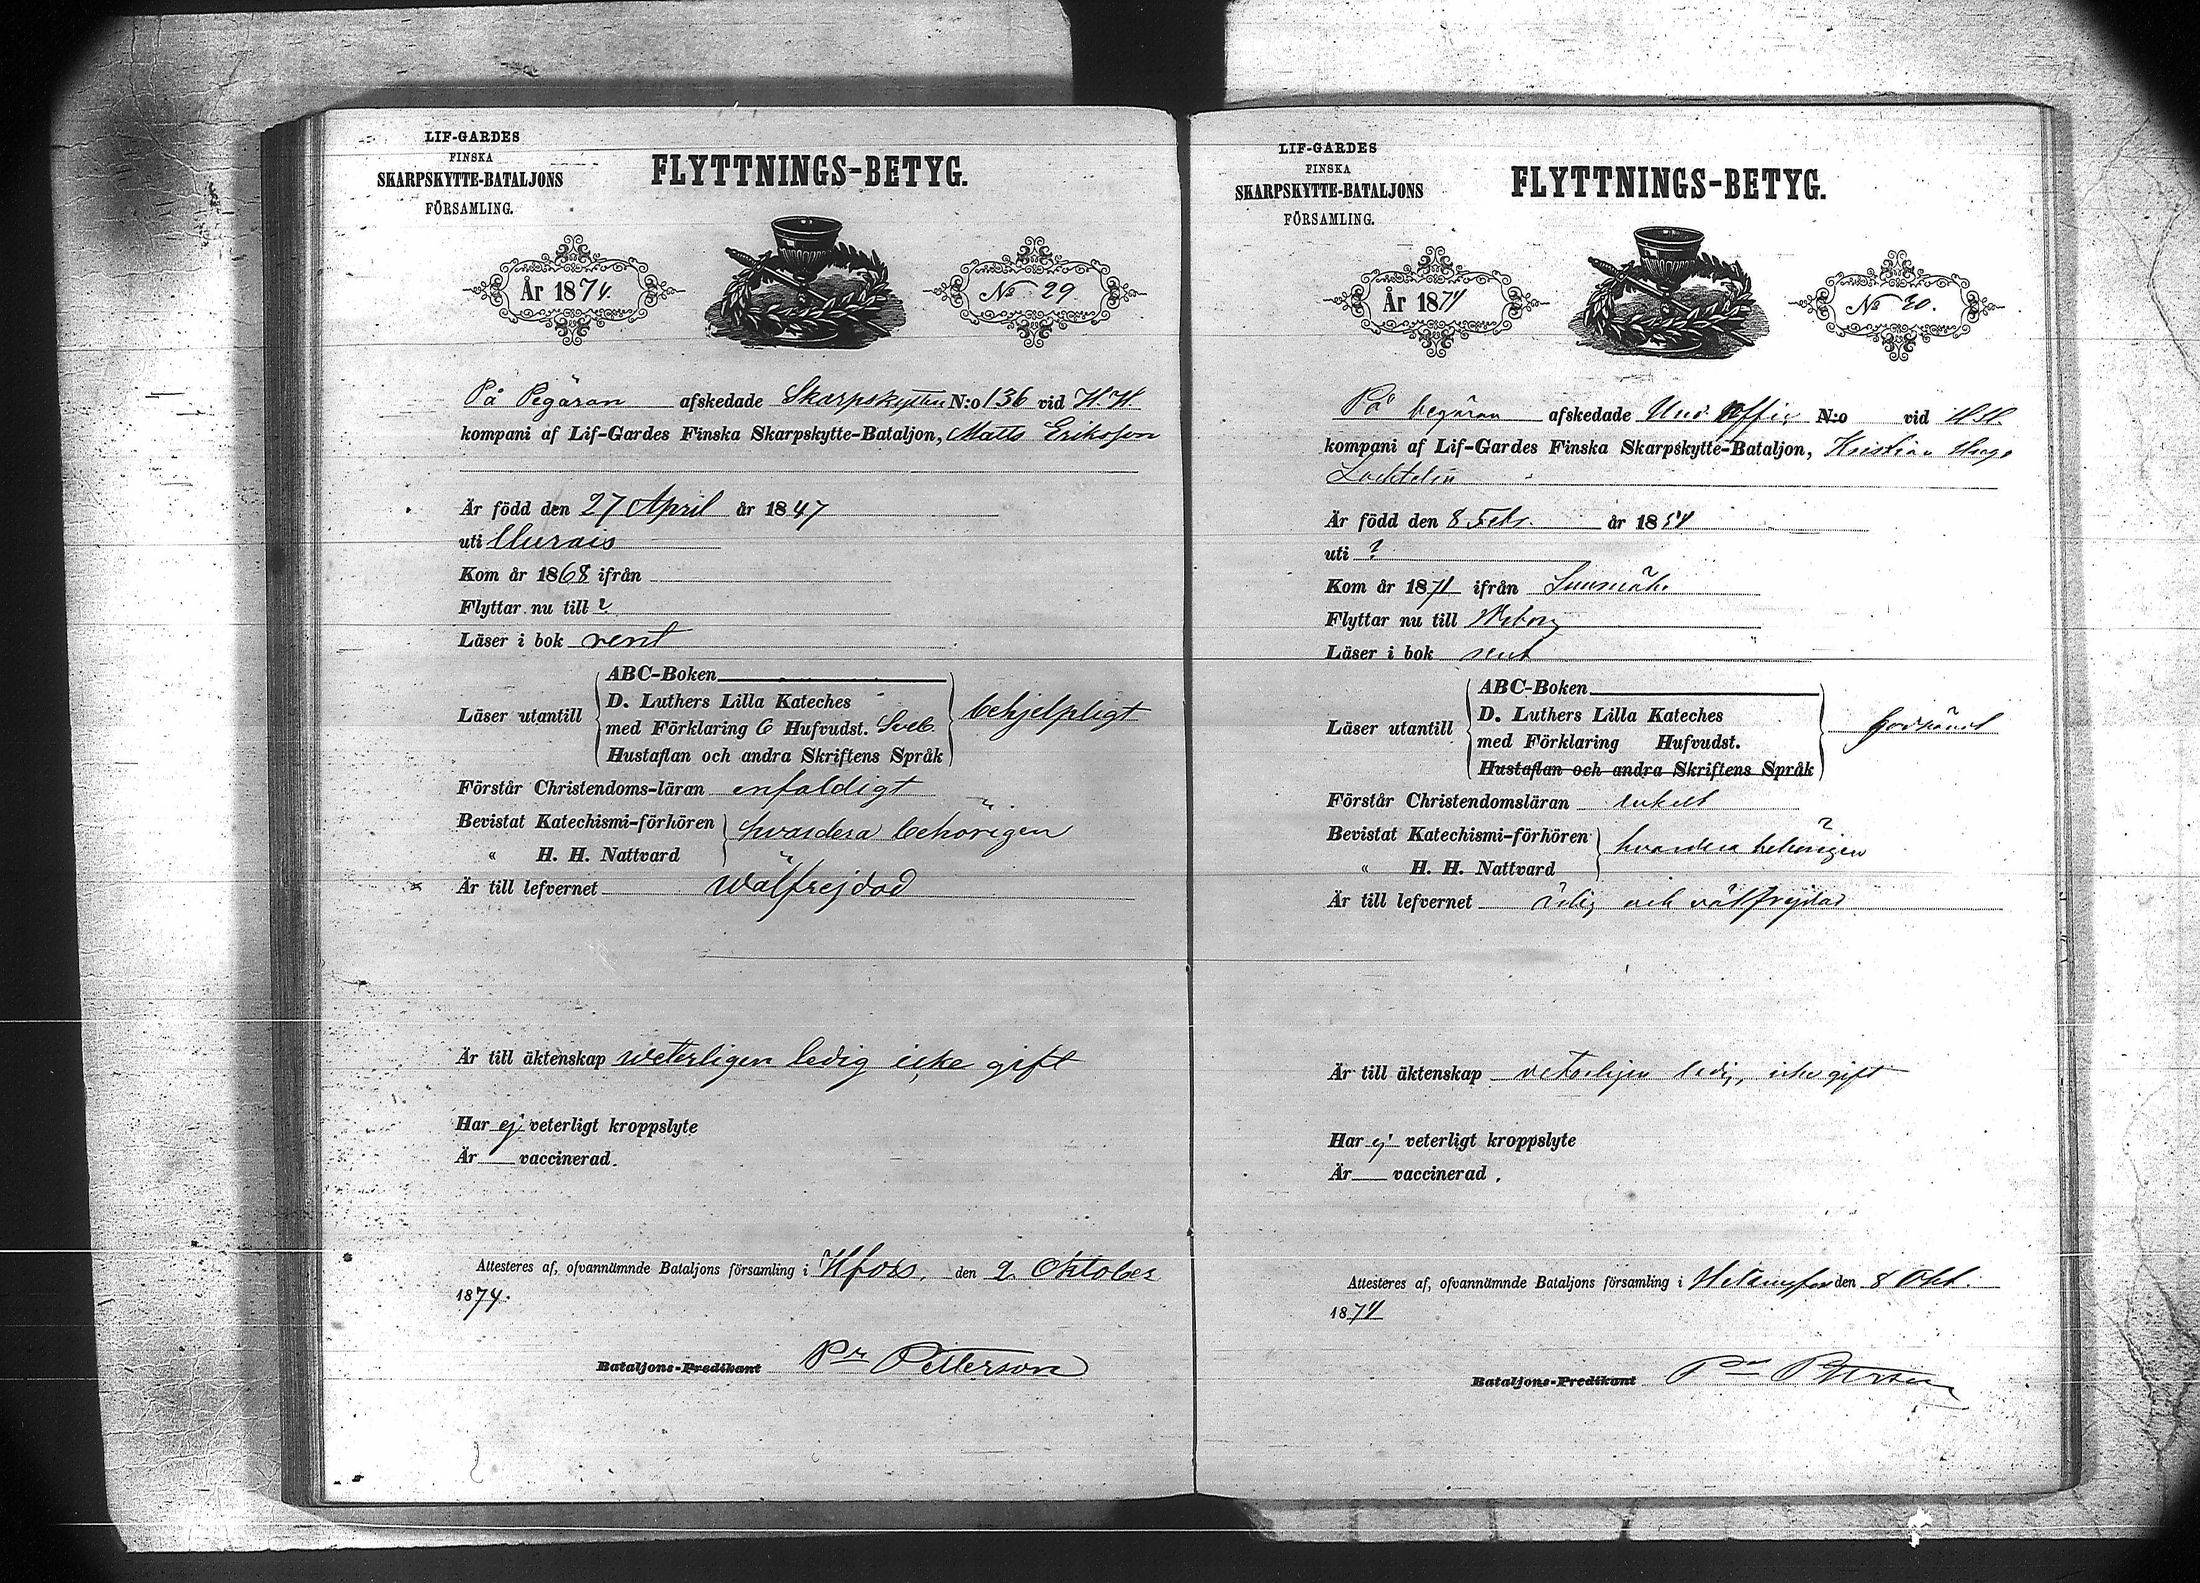 LIF-GARDES
FINSKA
SKARPSKYTTE-BATALJONS
FÖRSAMLING.
FLYTTNINGS-BETYG.
År 1874.
No 29.
På Pegäran afskedade Skarpskytten N:o 136 vid
kompani af Lif-Gardes Finska Skarpskytte-Bataljon, Matts Eriksson
Är född den 27 April år 1847
uti
Kom år 1868 ifrån
Flyttar nu till ?
Läser i bok rent
Läser utantill
ABC-Boken
D. Luthers Lilla Kateches
med Förklaring 6 Hufvudst. Sveb.
Hustaflan och andra Skriftens Språk
behjelpligt
Förstår Christendoms-läran enfaldigt
Bevistat Katechismi-förhören
« H. H. Nattvard
hvardera behörigen
Är till lefvernet Wälfrejdad
Är till äktenskap weterligen ledig icke gift
Har ej veterligt kroppslyte
Är vaccinerad.
Attesteres af, ofvannämnde Bataljons församling i Hfors, den 2 Oktober
1874.
Bataljons-Predikant Pr Petterson
LIF-GARDES
FINSKA
SKARPSKYTTE-BATALJONS
FÖRSAMLING.
FLYTTNINGS-BETYG.
År 1874
No 30.
På begäran afskedade Und. offic. N:o vid
kompani af Lif-Gardes Finska Skarpskytte-Bataljon, Kristian
Är född den 8 Febr. år 1854
uti ?
Kom år 1871 ifrån
Flyttar nu till Wiborg
Läser i bok rent
Läser utantill
ABC-Boken
D. Luthers Lilla Kateches
med Förklaring Hufvudst.
Hustaflan och andra Skriftens Språk
Förstår Christendomsläran enkelt
Bevistat Katechismi-förhören
« H. H. Nattvard
hvardera behörigen
Är till lefvernet ärlig och välfrejdad
Är till äktenskap veterligen ledig, icke gift
Har ej veterligt kroppslyte
Är vaccinerad.
Attesteres af, ofvannämnde Bataljons församling i Helsingfors den 8 Okt.
1874
Bataljons-Predikant Pr Petterson